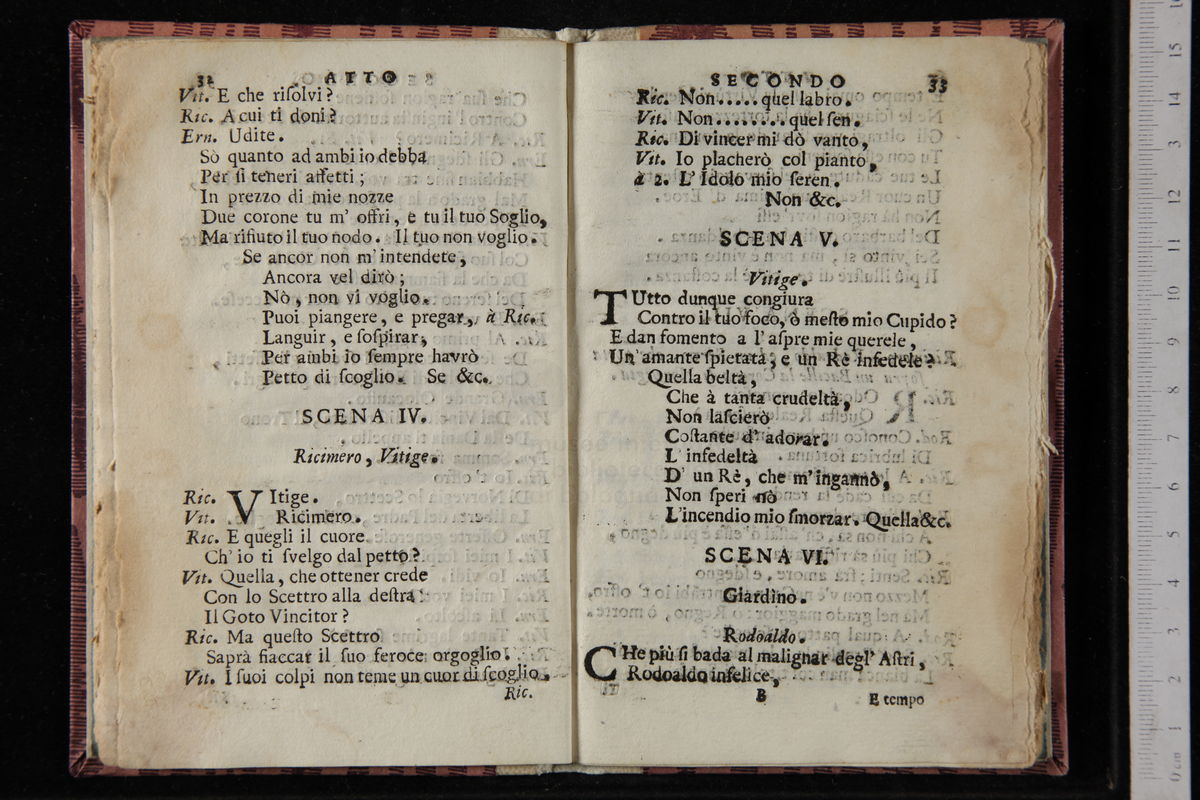 32 ATTO
Vit. E che risolvi?
Ric. A cui ti doni?
Ern. Udite.
Sò quanto ad ambi io debba
Per sì teneri affetti;
In prezzo di mie nozze
Due corone tu m' offri, e tu il tuo Soglio,
Ma rifiuto il tuo nodo. Il tuo non voglio.
Se ancor non m' intendete,
Ancora vel dirò;
Nò, non vi voglio.
Puoi piangere, e pregar, à Ric.
Languir, e sospirar,
Per ambi io sempre havrò
Petto di scoglio. Se &c.
SCENA IV.
Ricimero, Vitige.
Ric. VItige.
Vit. Ricimero.
Ric. E quegli il cuore
Ch' io ti svelgo dal petto?
Vit. Quella, che ottener crede
Con lo Scettro alla destra
Il Goto Vincitor?
Ric. Ma questo Scettro
Saprà fiaccar il suo feroce orgoglio.
Vit. I suoi colpi non teme un cuor di scoglio.
Ric.
SECONDO 33
Ric. Non..... quel labro.
Vit. Non........ quel sen.
Ric. Di vincer mi dò vanto,
Vit. Io placherò col pianto,
à 2. L' Idolo mio seren.
Non &c.
SCENA V.
Vitige.
TUtto dunque congiura
Contro il tuo foco, ò mesto mio Cupido?
E dan fomento a l' aspre mie querele,
Un' amante spietata, e un Rè infedele?
Quella beltà,
Che à tanta crudeltà,
Non lascierò
Costante d' adorar.
L' infedeltà
D' un Rè, che m' ingannò,
Non speri nò
L'incendio mio smorzar. Quella &c.
SCENA VI.
Giardino.
Rodoaldo.
CHe più si bada al malignar degl' Astri,
Rodoaldo infelice,
B E tempo